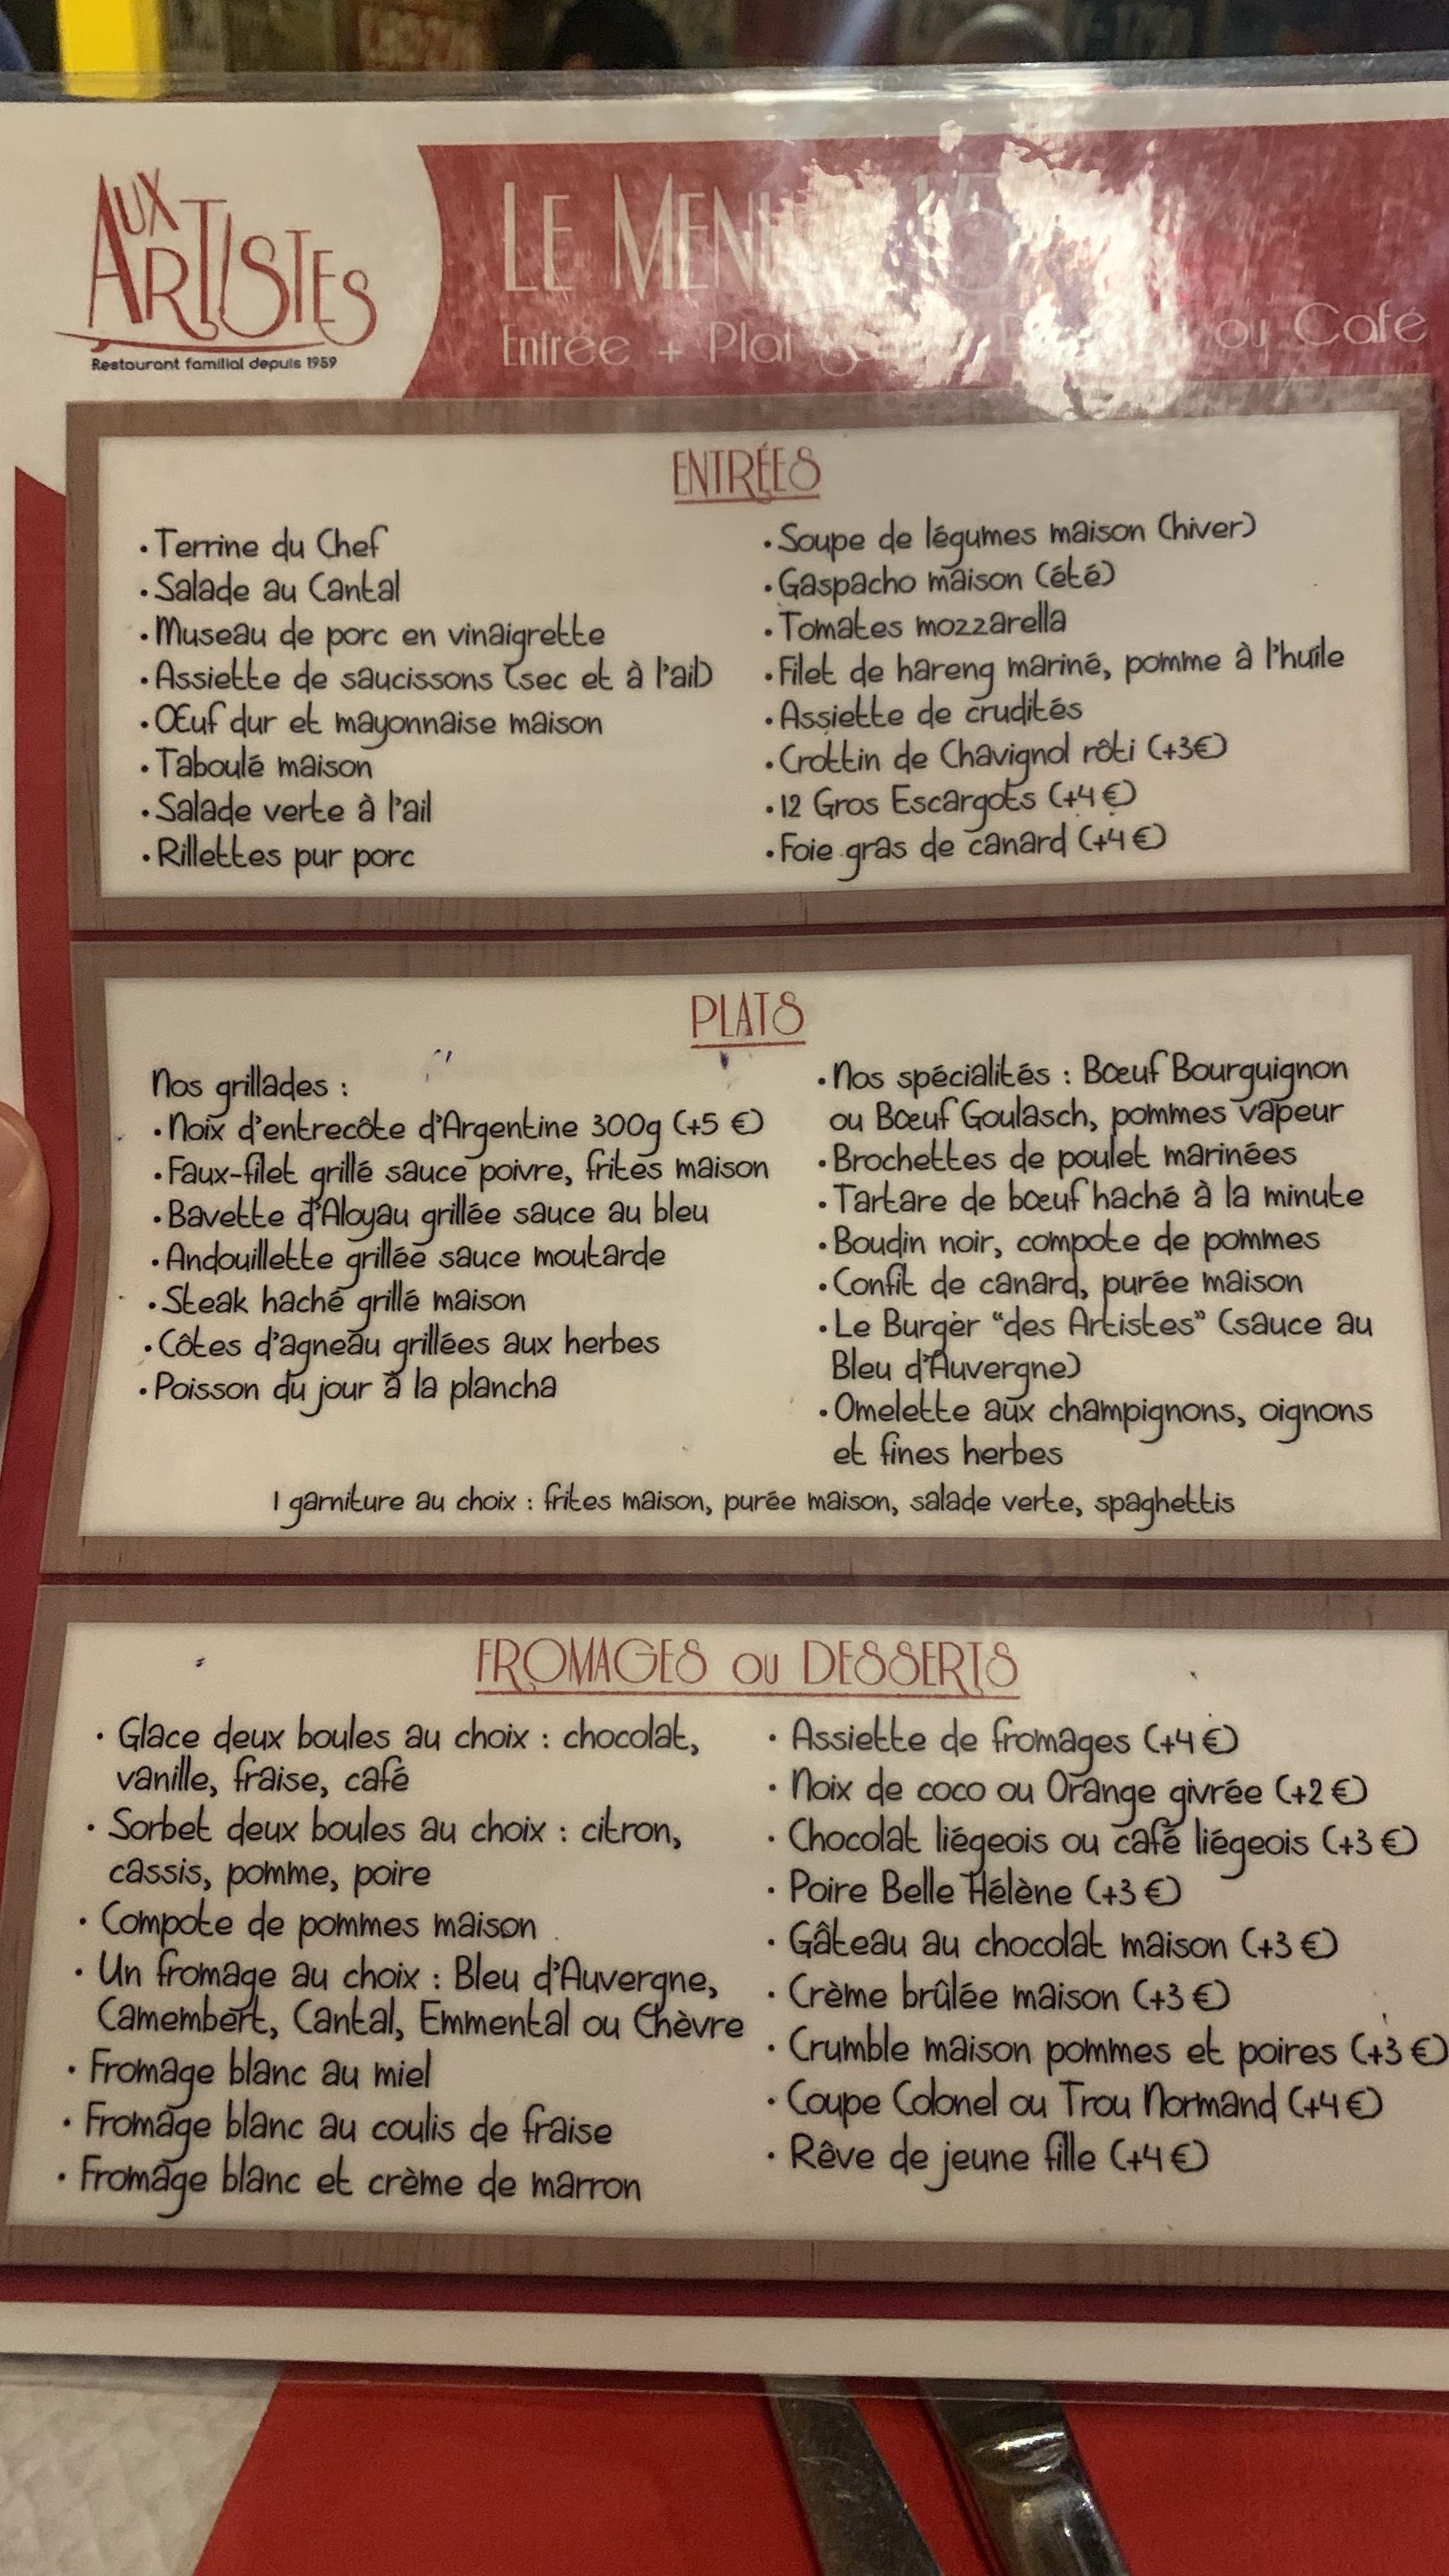 AUX
ARTISTES
Restaurant familial depuis 1959
LE MENU
Entrée + Plat ou Café
ENTRÉES
• Terrine du Chef
• Salade au Cantal
• Museau de porc en vinaigrette
• Assiette de saucissons (sec et à l'ail)
• Œuf dur et mayonnaise maison
• Taboulé maison
• Salade verte à l'ail
• Rillettes pur porc
• Soupe de légumes maison (hiver)
• Gaspacho maison (été)
• Tomates mozzarella
• Filet de hareng mariné, pomme à l'huile
• Assiette de crudités
• Crottin de Chavignol rôti (+3€)
• 12 Gros Escargots (+4€)
• Foie gras de canard (+4€)
PLATS
Nos grillades :
• Noix d'entrecôte d'Argentine 300g (+5 €)
• Faux-filet grillé sauce poivre, frites maison
• Bavette d'Aloyau grillée sauce au bleu
• Andouillette grillée sauce moutarde
• Steak haché grillé maison
• Côtes d'agneau grillées aux herbes
• Poisson du jour à la plancha
• Nos spécialités : Bœuf Bourguignon
ou Bœuf Goulasch, pommes vapeur
• Brochettes de poulet marinées
• Tartare de bœuf haché à la minute
• Boudin noir, compote de pommes
• Confit de canard, purée maison
• Le Burger "des Artistes" (sauce au
Bleu d'Auvergne)
• Omelette aux champignons, oignons
et fines herbes
1 garniture au choix : frites maison, purée maison, salade verte, spaghettis
FROMAGES ou DESSERTS
• Glace deux boules au choix : chocolat,
vanille, fraise, café
• Sorbet deux boules au choix : citron,
cassis, pomme, poire
• Compote de pommes maison
• Un fromage au choix : Bleu d'Auvergne,
Camembert, Cantal, Emmental ou Chèvre
• Fromage blanc au miel
• Fromage blanc au coulis de fraise
• Fromage blanc et crème de marron
• Assiette de fromages (+4€)
• Noix de coco ou Orange givrée (+2€)
• Chocolat liégeois ou café liégeois (+3€)
• Poire Belle Hélène (+3€)
• Gâteau au chocolat maison (+3€)
• Crème brûlée maison (+3€)
• Crumble maison pommes et poires (+3€)
• Coupe Colonel ou Trou Normand (+4€)
• Rêve de jeune fille (+4€)